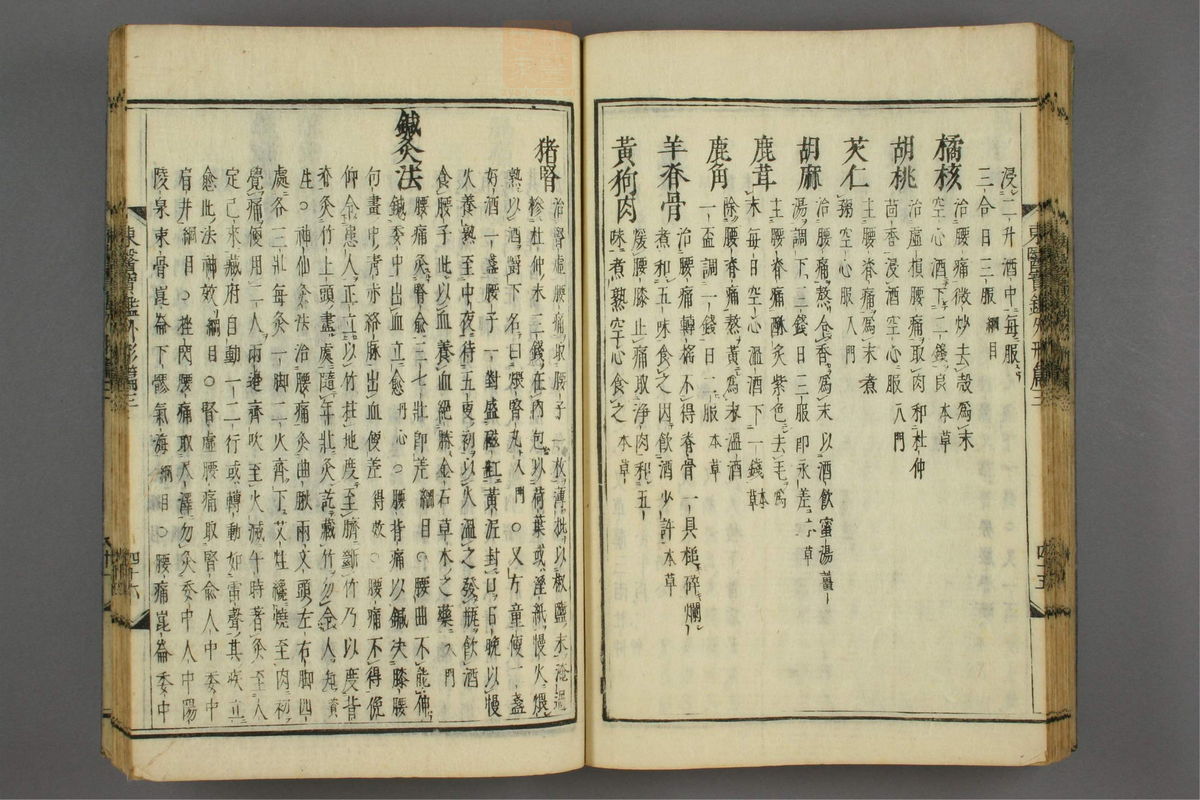 浸二升酒中每服
三合日三服 綱目
橘核 治腰痛微炒去殼爲末
空心酒下二錢良 本草
胡桃 治虛損腰痛取肉和杜仲
茴香浸酒空心服 入門
芡仁 主腰脊痛爲末煮
粥空心服 入門
胡麻 治腰痛熬令香爲末以酒飮蜜湯薑
湯調下三錢日三服卽永差 本草
鹿茸 主腰脊痛酥灸紫色去毛爲
末每日空心溫酒下一錢 本草
鹿角 除腰脊痛熬黃爲末溫酒
一盃調一錢日二服 本草
羊脊骨 治腰痛轉搖不得脊骨一具槌碎爛
煮和五味食之因飮酒少許 本草
黃狗肉 煖腰膝止痛取淨肉和五
味煮熟空心食之 本草
東醫寶鑑外形篇三
四十五
猪腎 治腎虛腰痛取腰子一枚薄批以椒鹽末淹過
摻杜仲末三錢在內包以荷葉或溼紙慢火煨
熟以酒嚼下名曰煨腎丸 入門 ○又方童便一盞
好酒一盞腰子一對盛磁缸黃泥封口日晚以慢
火養熟至中夜待五更初以火溫之發甁飮酒
食腰子此以血養血絕勝金石草木之藥 入門
鍼灸法 腰痛灸腎兪三七壯卽差 綱目 ○腰曲不能伸
鍼委中出血立愈 丹心 ○腰背痛以鍼決膝腰
句畫中靑赤絡脉出血便差 得效 ○腰痛不得俛
仰令患人正立以竹柱地度至臍斷竹乃以度背
脊灸竹上頭盡處隨年壯灸訖藏竹勿令人知 資
生 ○神仙灸法治腰痛灸曲䐐兩文頭左右脚四
處各三壯每灸一脚二火齊下艾炷纔燒至肉初
覺痛便用二人兩邊齊吹至火滅午時著灸至人
定已來藏府自動一二行或轉動如雷聲其疾立
愈此法神效 綱目 ○腎虛腰痛取腎兪人中委中
肩井 綱目 ○挫閃腰痛取尺澤勿灸委中人中陽
陵泉束骨崑崙下髎氣海 綱目 ○腰痛崑崙委中
東醫寶鑑外形篇三
四十六